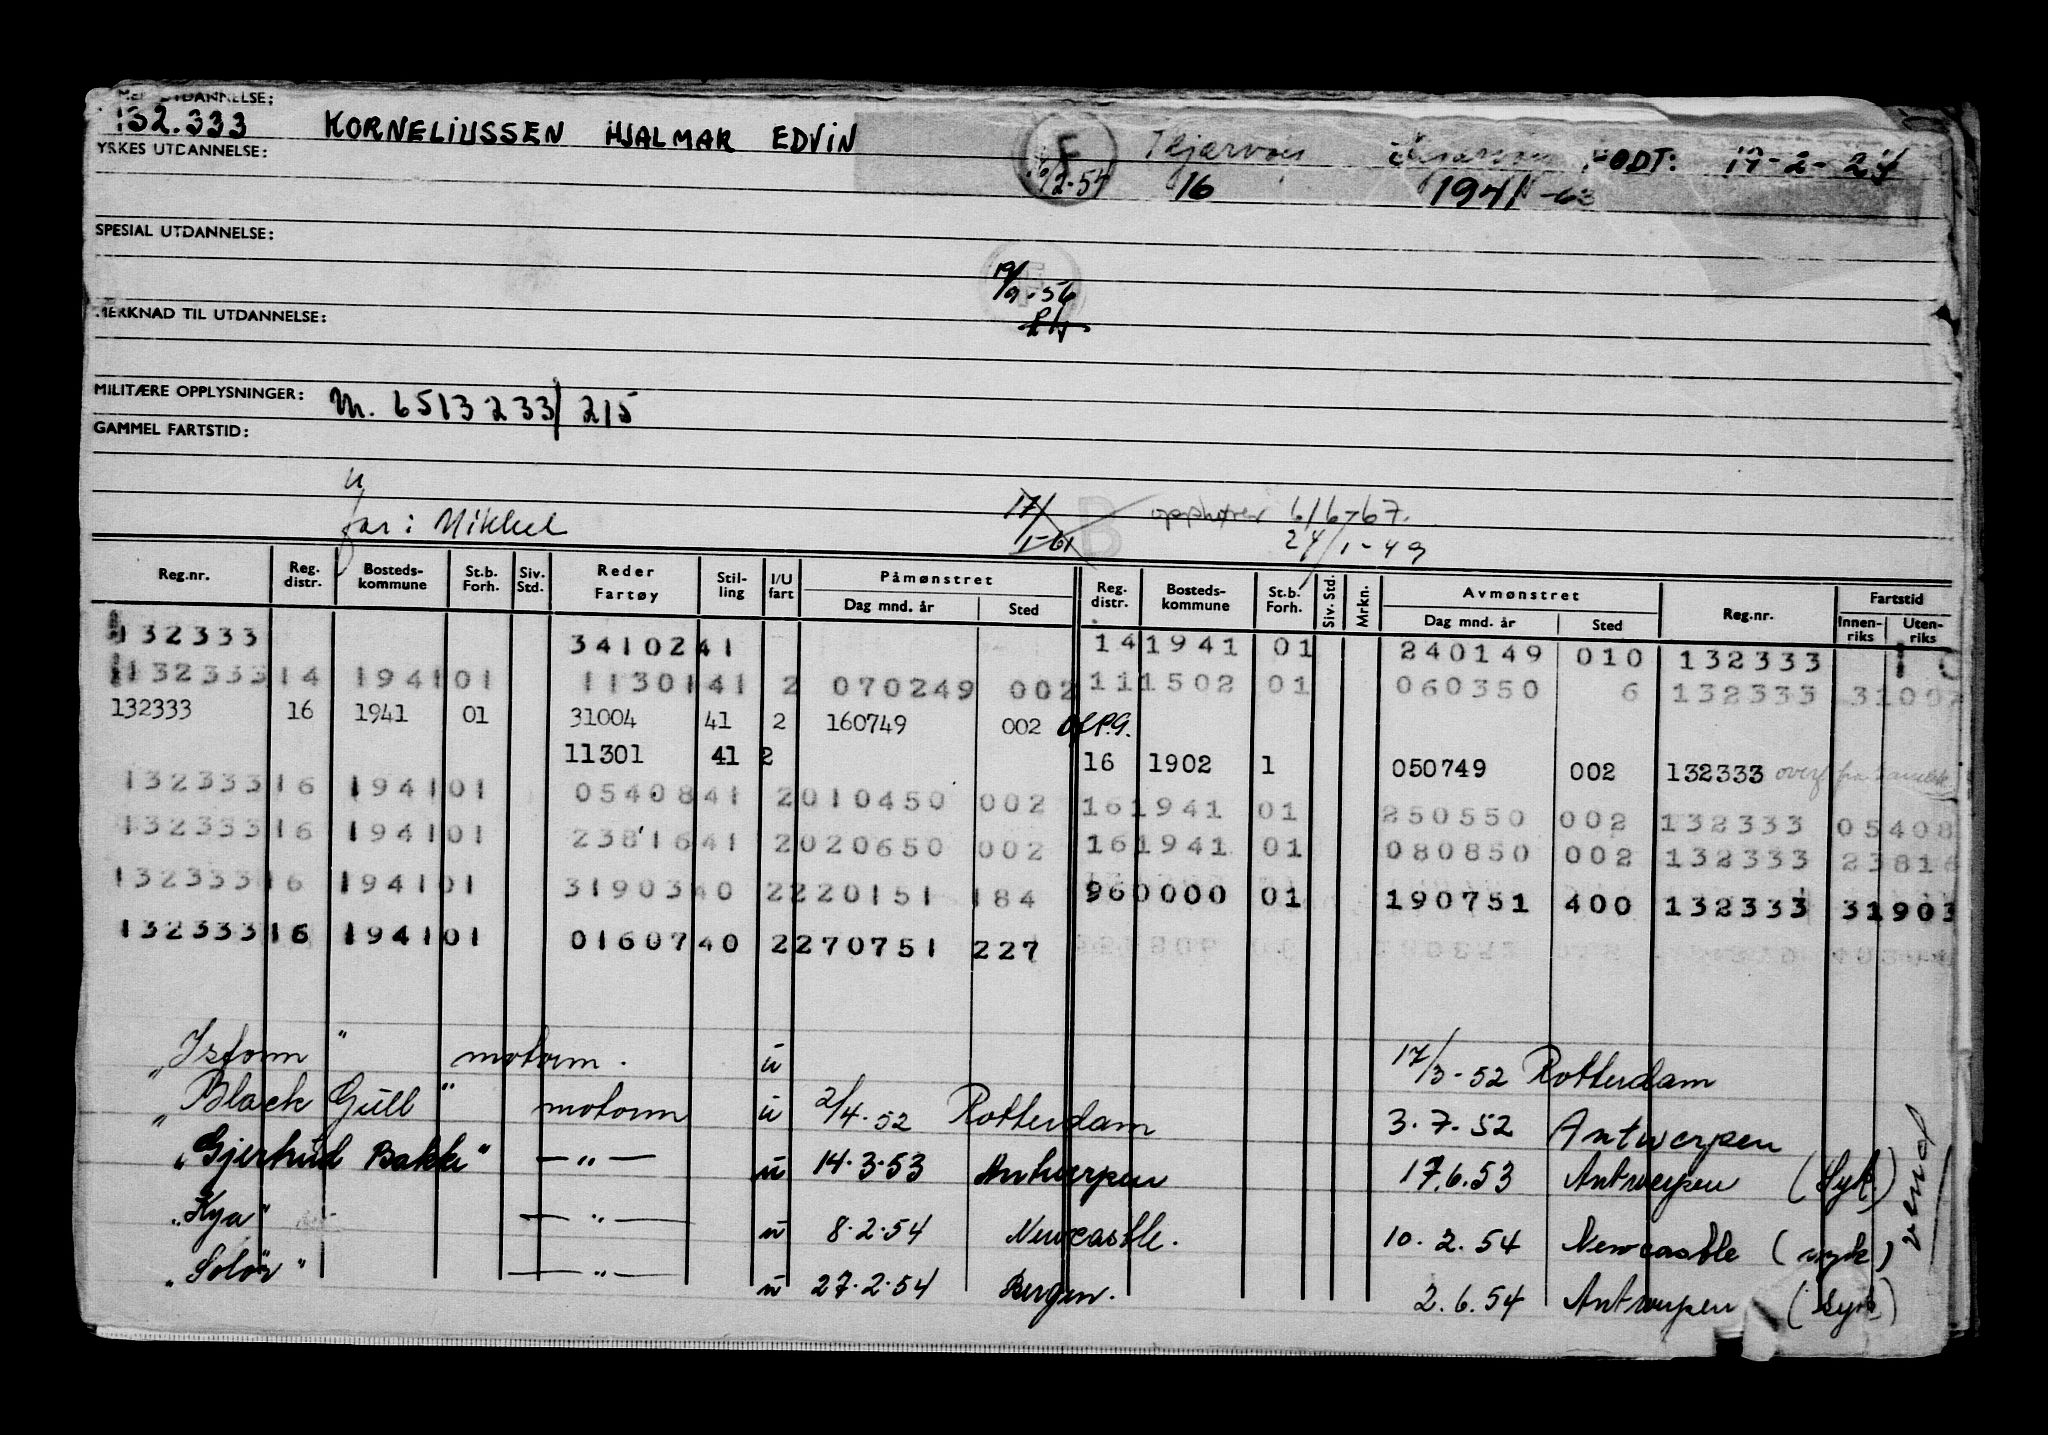 UTDANNELSE:
132.333 KORNELIUSSEN HJALMAR EDVIN F Skjervøy FØDT: 19-2-24
2-54 16 1941
YRKES UTDANNELSE:
SPESIAL UTDANNELSE:
19/9-56
MERKNAD TIL UTDANNELSE:
MILITÆRE OPPLYSNINGER: M. 6513233/215
GAMMEL FARTSTID:
u
far: Mikkel 17/1-61 B opphører 6/6-67.
24/1-49
Reg.nr. Reg. distr. Bosteds-kommune St.b. Forh. Siv. Std. Reder Fartøy Stil-ling I/U fart Påmønstret Dag mnd. år Sted Reg. distr. Bosteds-kommune St.b. Forh. Siv. Std. Mrkn. Avmønstret Dag mnd. år Sted Reg.nr. Fartstid Innen-riks Uten-riks
132333 3410241 141941 01 240149 010 132333
13233314 194101 1130141 2 070249 002 111502 01 060350 6 132333 31007
132333 16 1941 01 31004 41 2 160749 002
11301 41 2 16 1902 1 050749 002 132333 overf fra
13233316 194101 0540841 2010450 002 161941 01 250550 002 132333 05408
13233316 194101 2381641 2020650 002 161941 01 080850 002 132333 23816
13233316 194101 3190340 2220151 184 960000 01 190751 400 132333 31903
13233316 194101 0160740 2270751 227
"Isfonn" motorm. u 17/3-52 Rotterdam
"Black Gull" motorm u 2/4.52 Rotterdam 3.7.52 Antwerpen
"Gjertrud Bakke" —"— u 14.3.53 Antwerpen 17.6.53 Antwerpen (Syk)
"Kya" —"— u 8.2.54 Newcastle. 10.2.54 Newcastle (syk)
"Solør" —"— u 27.2.54 Bergen. 2.6.54 Antwerpen (syk)
vend